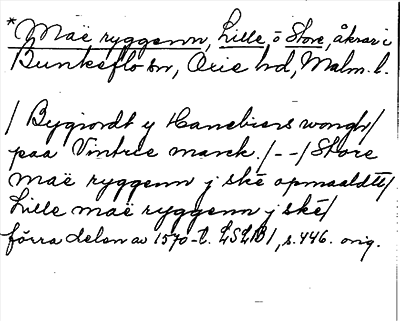 *Maë ryggenn, Lille o Store, åkrar i
Bunkeflo sn, Oxie hd, Malm. l.
/ Bygiordt y Hanebiers wongh/
paa Vintrie marck. /--/ Store
maë ryggenn j ske opmaaldtt/
Lille maë ryggenn j ske/
förra delen av 1570-t. LSLB1, s. 446. orig.